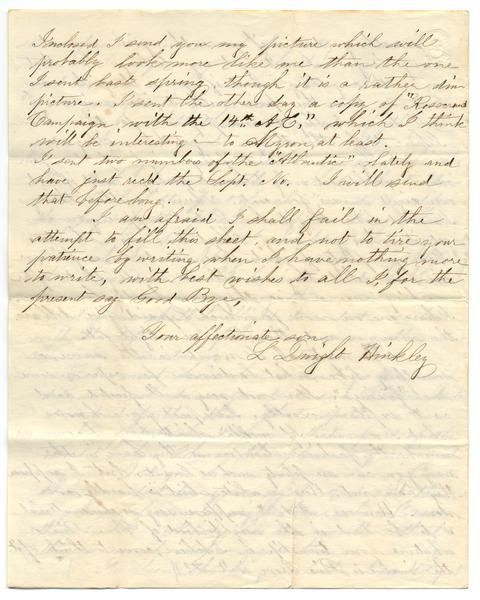 Inclosed I send you my picture which will
probably look more like me than the one
I sent last spring, though it is a rather dim
picture. I sent the other day a copy of "Rosecrans
Campaign with the 14th A.C." which I think
will be interesting – to Myron at least.
I sent two numbers of the "Atlantic" lately and
have just recd the Sept. No. I will send
that before long.
I am afraid I shall fail in the
attempt to fill this sheet, and not to tire your
patience by writing when I have nothing more
to write, with best wishes to all I, for the
present say Good Bye,
Your affectionate son
L Dwight Hinkley